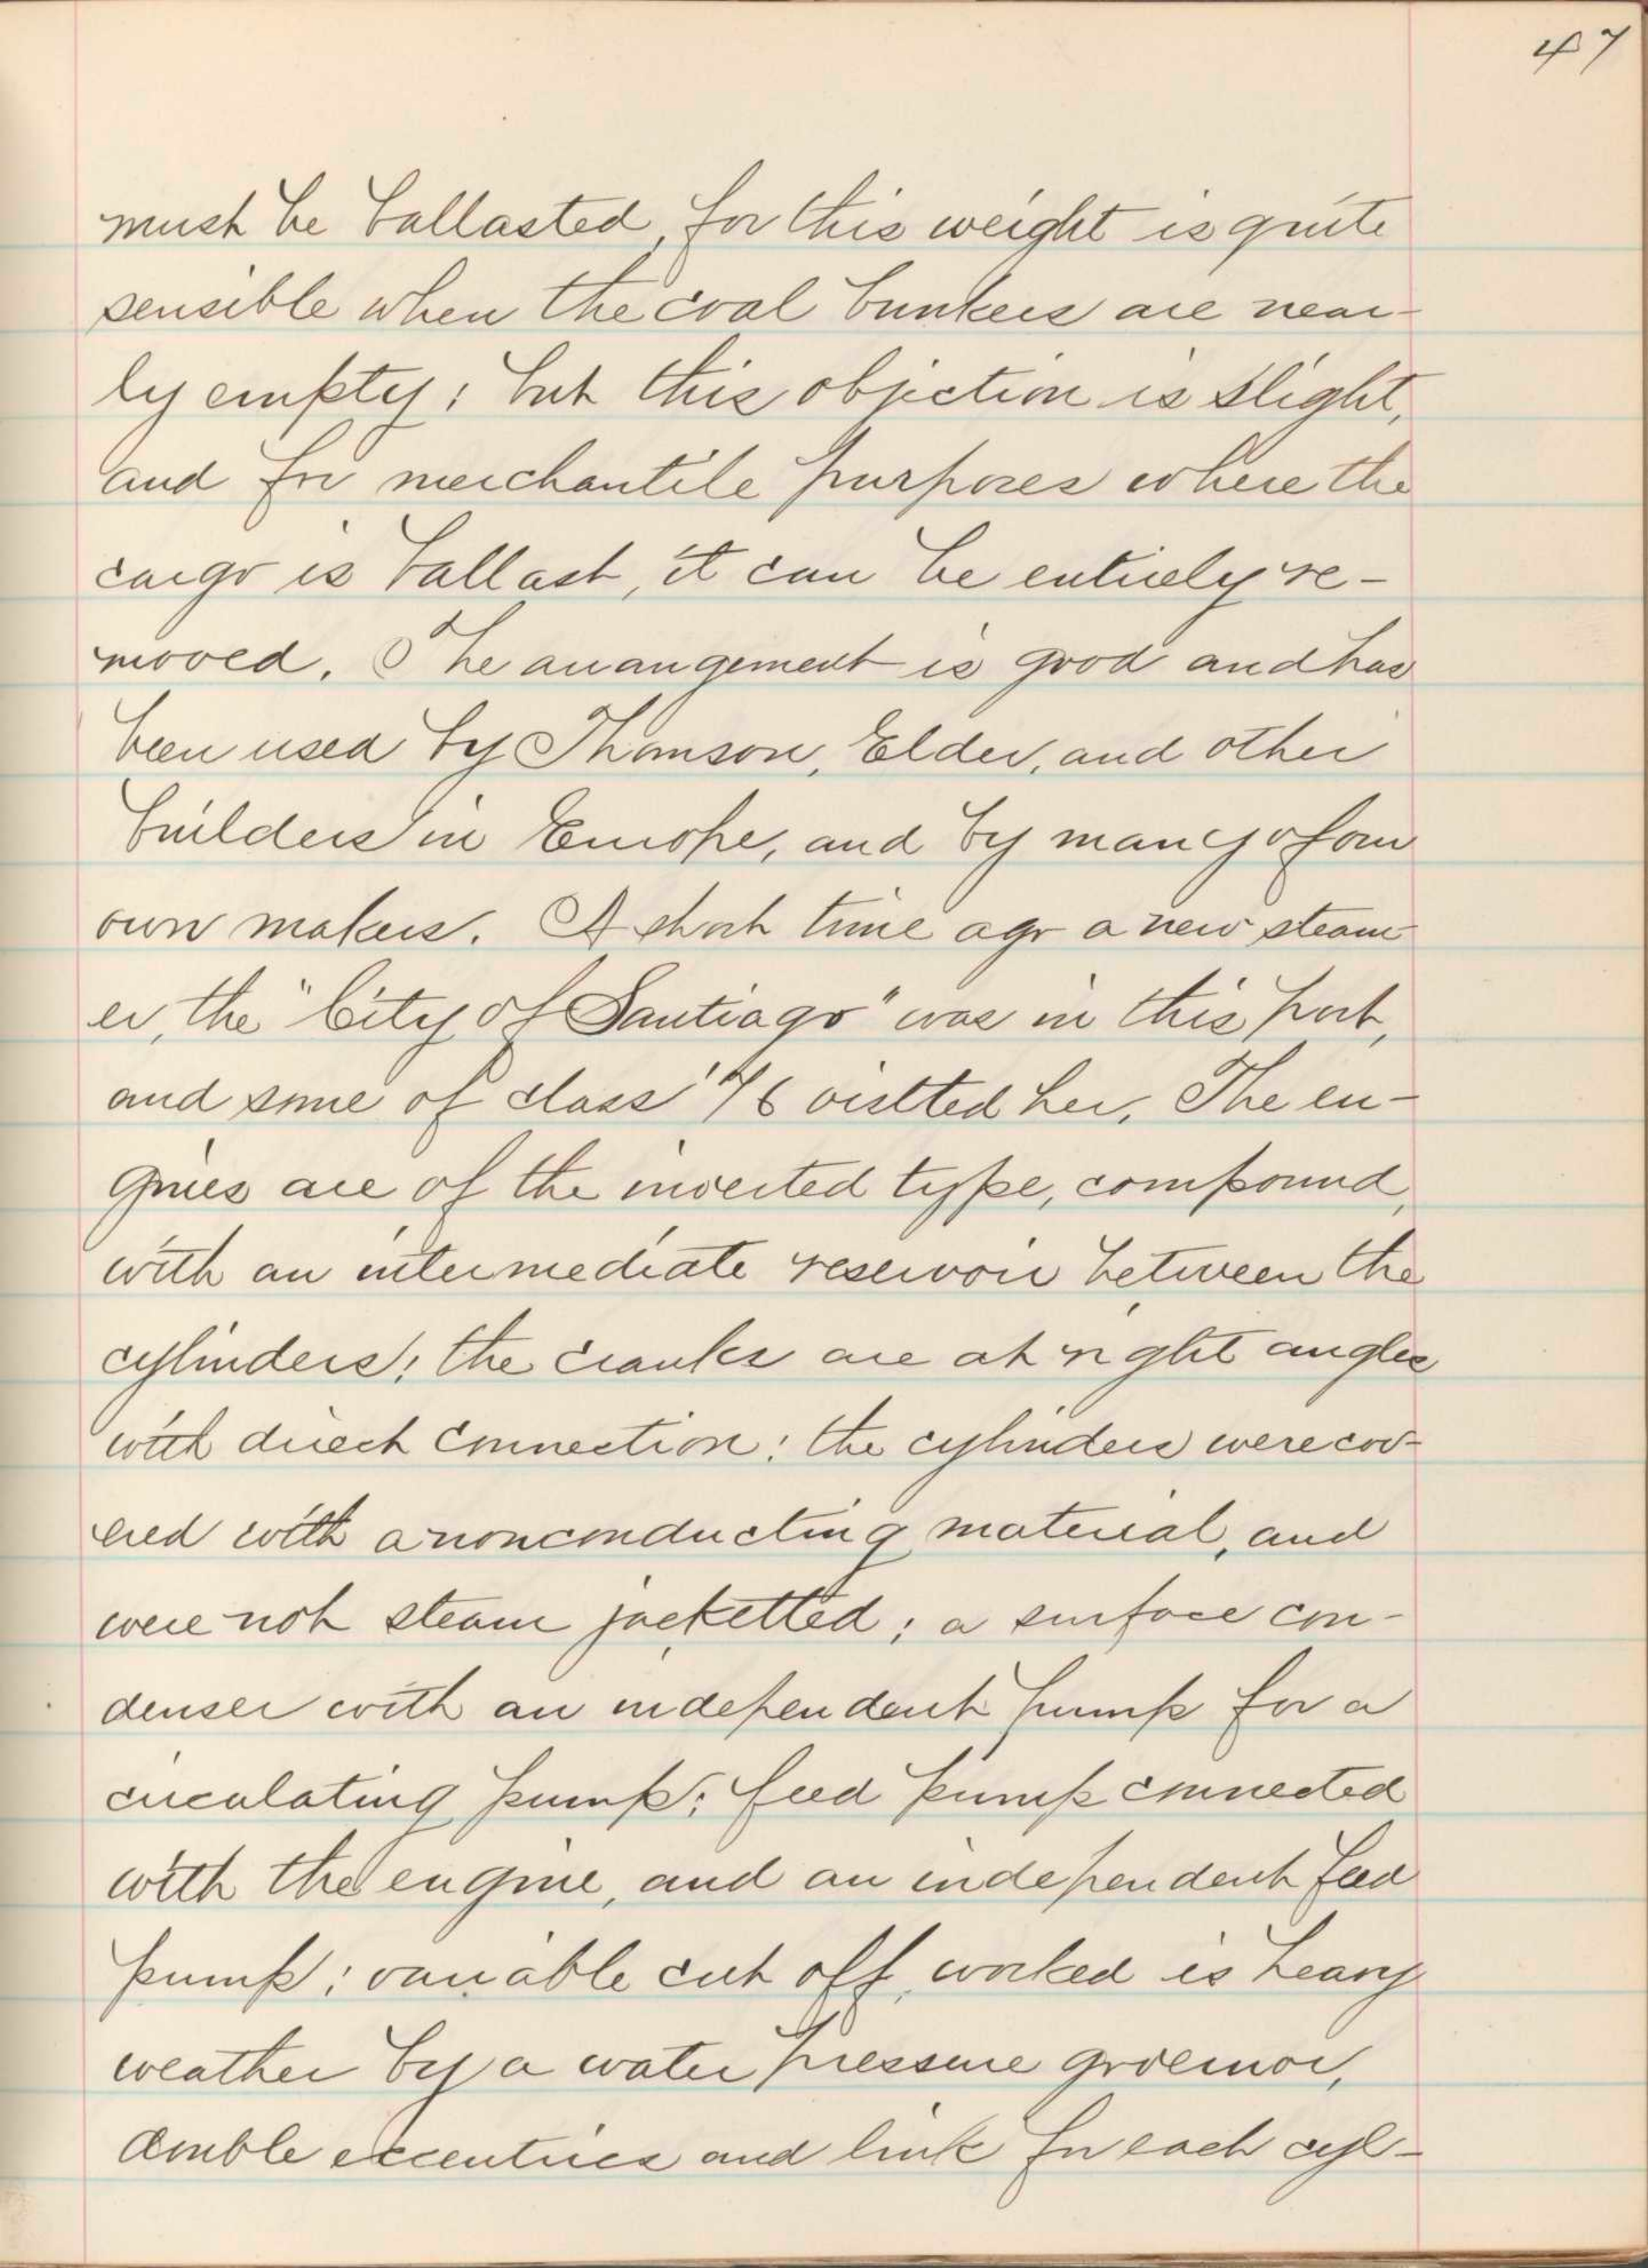 47
must be ballasted, for this weight is quite
sensible when the coal bunkers are near-
ly empty; but this objection is slight,
and for merchantile purposes where the
cargo is ballast, it can be entirely re-
moved. The arrangement is good and has
been used by Thomson, Elder, and other
builders in Europe, and by many of our
own makers. A short time ago a new steam-
er, the "City of Santiago" was in this port,
and some of class '76 visited her. The en-
gines are of the inverted type, compound,
with an intermediate reservoir between the
cylinders; the cranks are at right angles
with direct connection: the cylinders were cov-
ered with a nonconducting material, and
were not steam jacketted; a surface con-
denser with an independent pump for a
circulating pump; feed pump connected
with the engine, and an independent feed
pump; variable cut off, worked is heavy
weather by a water pressure governor,
double eccentrics and link for each cyl-